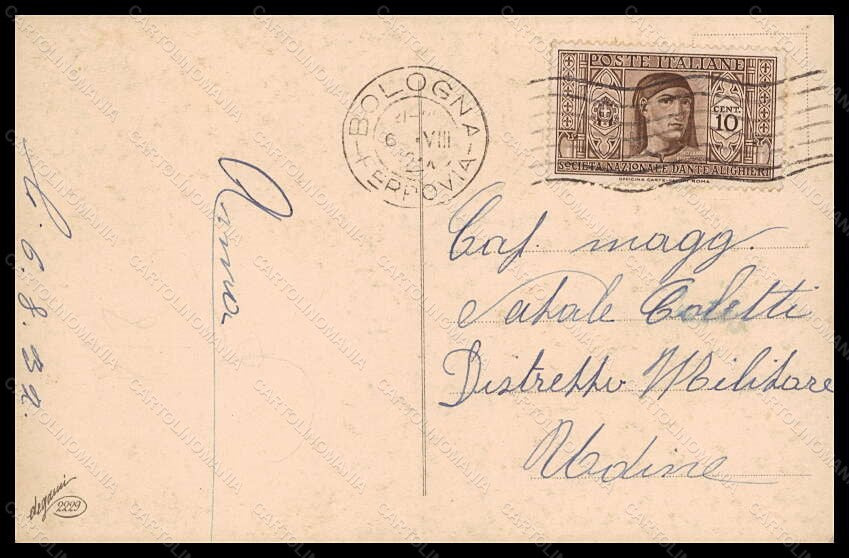 POSTE ITALIANE
CENT. 10
SOCIETÀ NAZIONALE DANTE ALIGHIERI
BOLOGNA
6 VIII
FERROVIA
Cap. magg.
Natale Coletti
Distretto Militare
Udine
6. 8. 32.
Anna
degami
2229
CARTOLINOMANIA